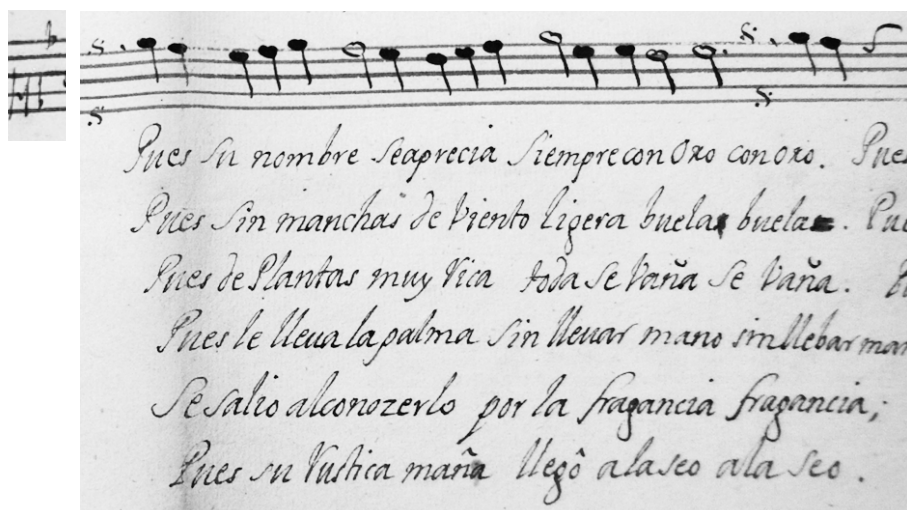 Pues su nombre seaprecia siemprecon oro con oro. Pues
Pues sin manchas de viento ligera buela buela. Pu
Pues de Plantas muy rica toda se vaña se vaña.
Pues le lleua la palma sin lleuar mano sin llebar man
Se salio alconozerlo por la fragancia fragancia;
Pues su rustica maña llegô alaseo ala seo.